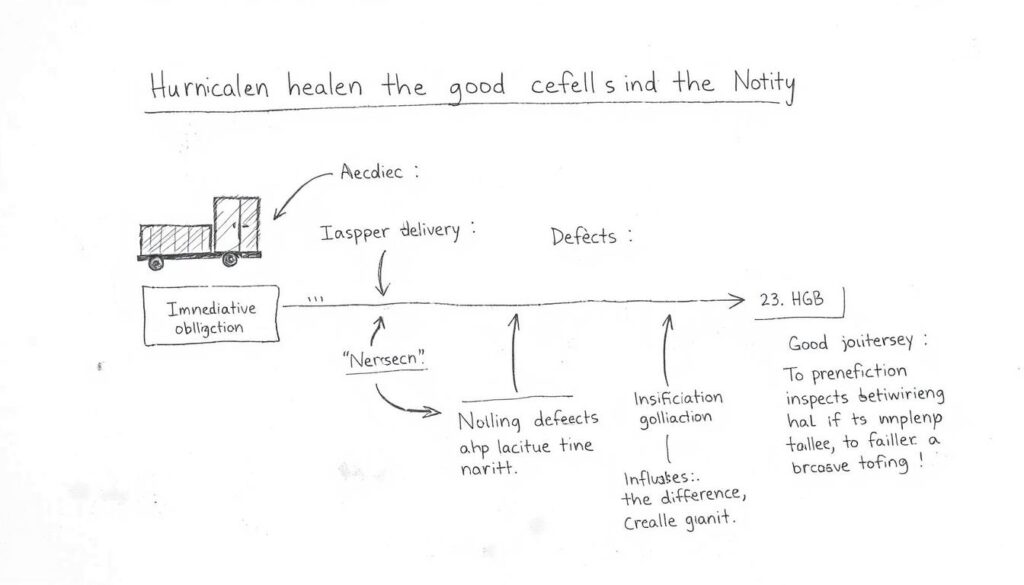 Hurnicalen healen the good cefell s ind the Notity
Aecdiec :
Iaspper delivery :
Defects :
Imnediative
obligction
...
23. HGB
"Nerrsecn".
Nolling defeects
ahp lacitue tine
naritt.
Insificiation
golliaction
Influbes:.
the difference,
Crealle gianit.
Good joutersey :
To prenefiction
inspects betiwirieng
hal if ts wnplenp
taillee, to failler a
brcosve tofing !